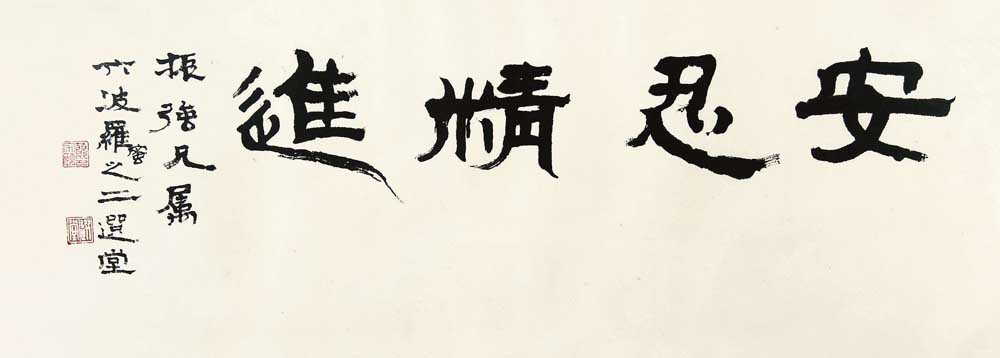 安忍精進
振強兄屬
六波羅蜜之二選堂